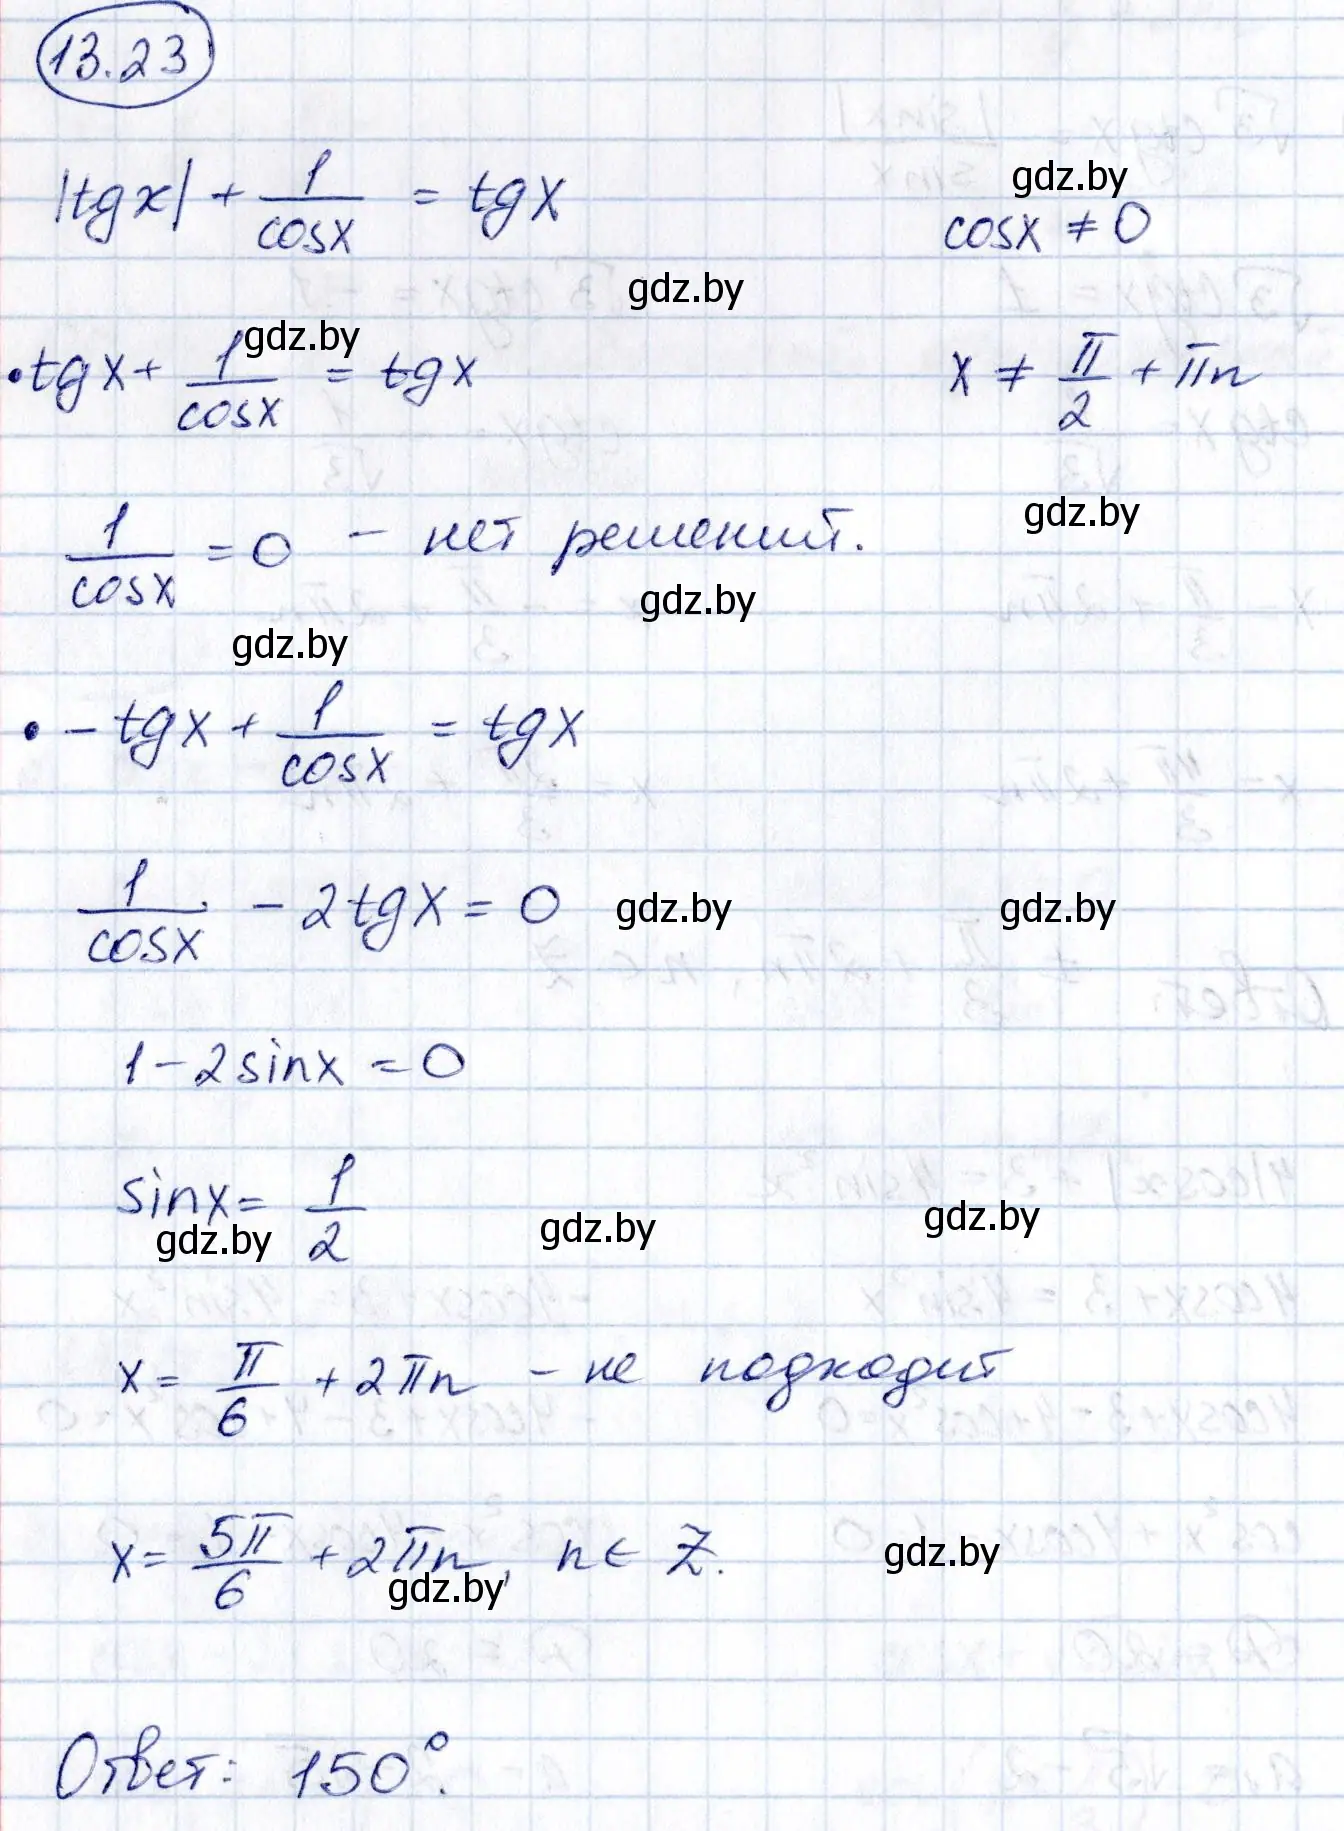 13.23
|tgx| + 1/cosx = tgx
gdz.by
cosx ≠ 0
gdz.by
gdz.by
• tgx + 1/cosx = tgx
x ≠ π/2 + πn
1/cosx = 0 – нет решений.
gdz.by
gdz.by
gdz.by
• – tgx + 1/cosx = tgx
1/cosx – 2tgx = 0
gdz.by
gdz.by
1 – 2sinx = 0
sinx = 1/2
gdz.by
gdz.by
gdz.by
x = π/6 + 2πn – не подходит
x = 5π/6 + 2πn, n ∈ Z.
gdz.by
gdz.by
Ответ: 150°.